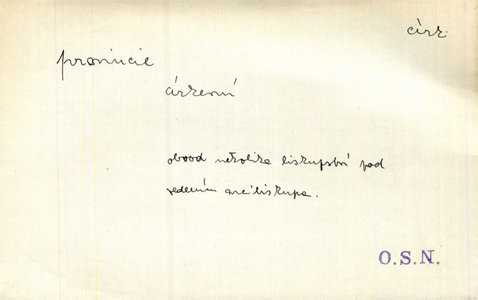 círk.
provincie
církevní
obvod několika biskupství pod
vedením arcibiskupa.
O.S.N.